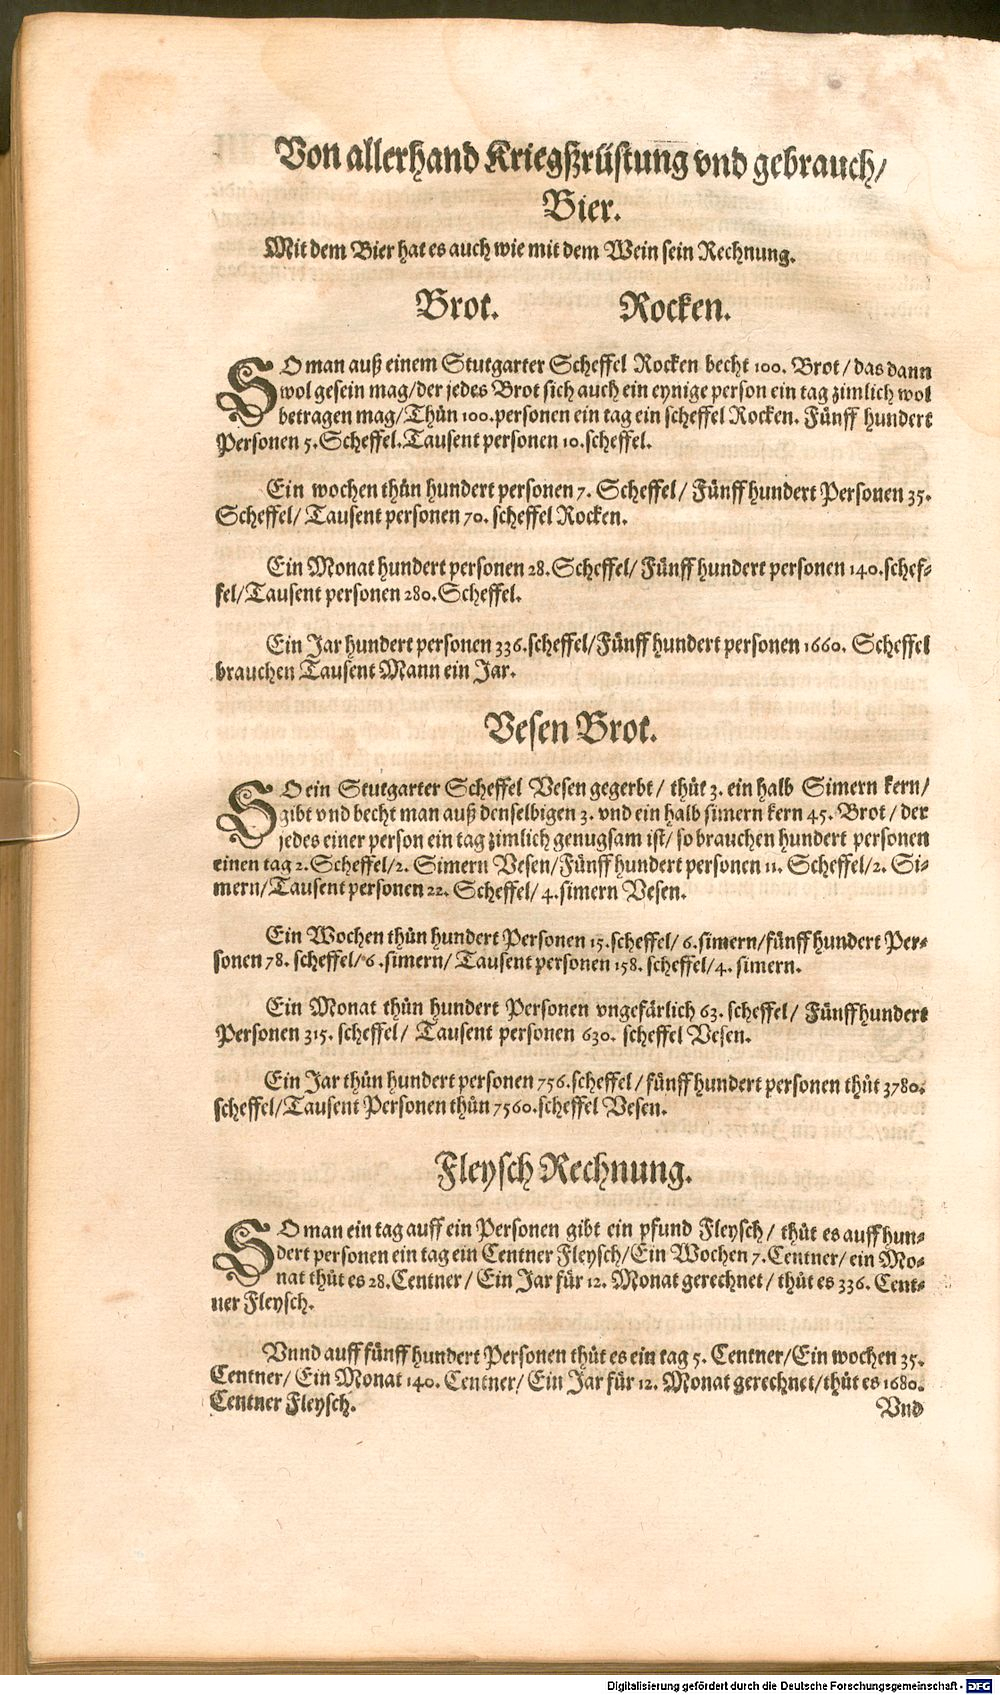 Von allerhand Kriegßrüstung vnd gebrauch/
Bier.
Mit dem Bier hat es auch wie mit dem Wein sein Rechnung.
Brot. Rocken.
SO man auß einem Stutgarter Scheffel Rocken becht 100. Brot/ das dann
wol gesein mag/ der jedes Brot sich auch ein eynige person ein tag zimlich wol
betragen mag/ Thůn 100. personen ein tag ein scheffel Rocken. Fünff hundert
Personen 5. Scheffel. Tausent personen 10. scheffel.
Ein wochen thůn hundert personen 7. Scheffel/ Fünff hundert Personen 35.
Scheffel/ Tausent personen 70. scheffel Rocken.
Ein Monat hundert personen 28. Scheffel/ Fünff hundert personen 140. schef-
fel/ Tausent personen 280. Scheffel.
Ein Jar hundert personen 336. scheffel/ Fünff hundert personen 1660. Scheffel
brauchen Tausent Mann ein Jar.
Vesen Brot.
SO ein Stutgarter Scheffel Vesen gegerbt/ thůt 3. ein halb Simern kern/
gibt vnd becht man auß denselbigen 3. vnd ein halb simern kern 45. Brot/ der
jedes einer person ein tag zimlich genugsam ist/ so brauchen hundert personen
einen tag 2. Scheffel/ 2. Simern Vesen/ Fünff hundert personen 11. Scheffel/ 2. Si-
mern/ Tausent personen 22. Scheffel/ 4. simern Vesen.
Ein Wochen thůn hundert Personen 15. scheffel/ 6. simern/ fünff hundert Per-
sonen 78. scheffel/ 6. simern/ Tausent personen 158. scheffel/ 4. simern.
Ein Monat thůn hundert Personen vngefärlich 63. scheffel/ Fünff hundert
Personen 315. scheffel/ Tausent personen 630. scheffel Vesen.
Ein Jar thůn hundert personen 756. scheffel/ fünff hundert personen thůt 3780.
scheffel/ Tausent Personen thůn 7560. scheffel Vesen.
Fleysch Rechnung.
SO man ein tag auff ein Personen gibt ein pfund Fleysch/ thůt es auff hun-
dert personen ein tag ein Centner Fleysch/ Ein Wochen 7. Centner/ ein Mo-
nat thůt es 28. Centner/ Ein Jar für 12. Monat gerechnet/ thůt es 336. Cent-
ner Fleysch.
Vnnd auff fünff hundert Personen thůt es ein tag 5. Centner/ Ein wochen 35.
Centner/ Ein Monat 140. Centner/ Ein Jar für 12. Monat gerechnet/ thůt es 1680.
Centner Fleysch.
Vnd
Digitalisierung gefördert durch die Deutsche Forschungsgemeinschaft - DFG